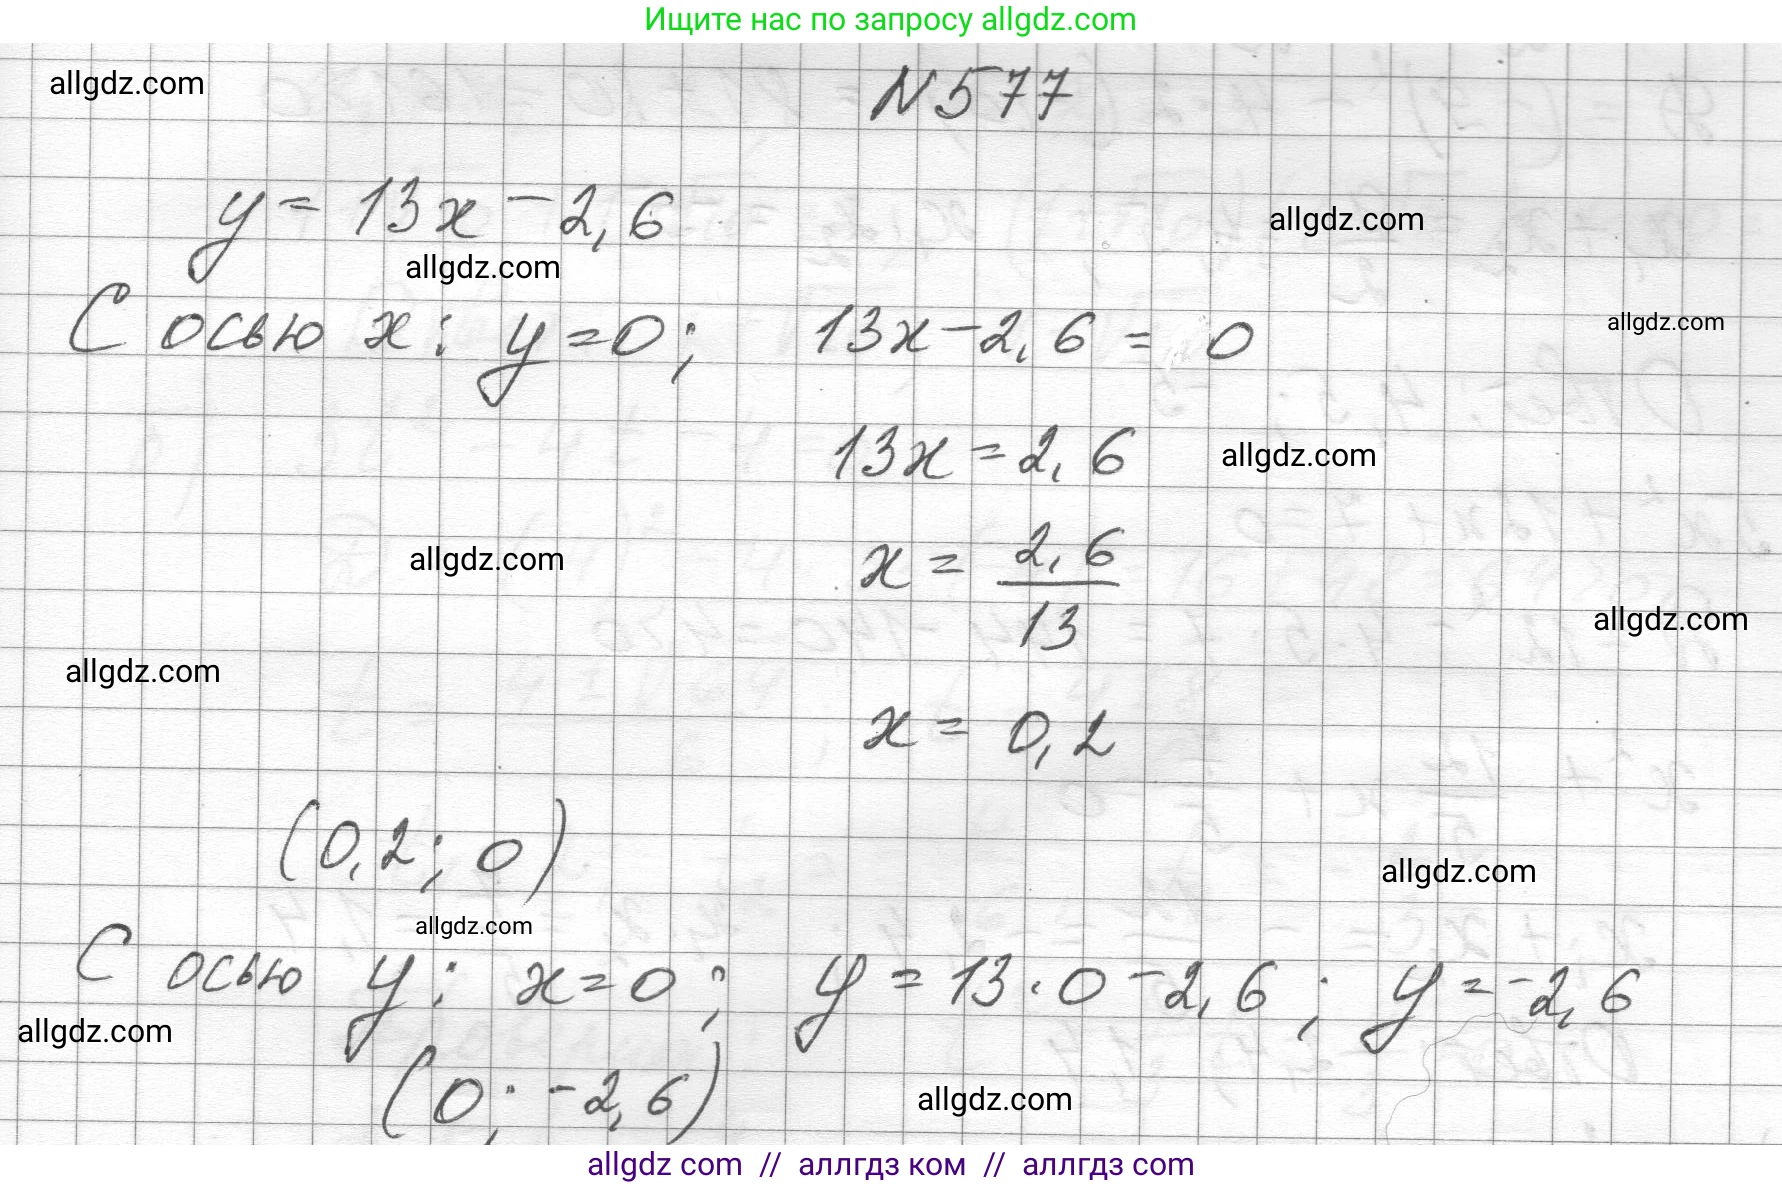 Ищите нас по запросу allgdz.com
allgdz.com
N 577
y = 13x - 2,6
allgdz.com
allgdz.com
С осью x: y = 0; 13x - 2,6 = 0
allgdz.com
13x = 2,6
allgdz.com
x = 2,6/13
allgdz.com
allgdz.com
allgdz.com
x = 0,2
(0,2; 0)
allgdz.com
allgdz.com
С осью y: x = 0; y = 13 · 0 - 2,6; y = -2,6
allgdz.com
(0; -2,6)
allgdz.com
allgdz com // аллгдз ком // аллгдз com